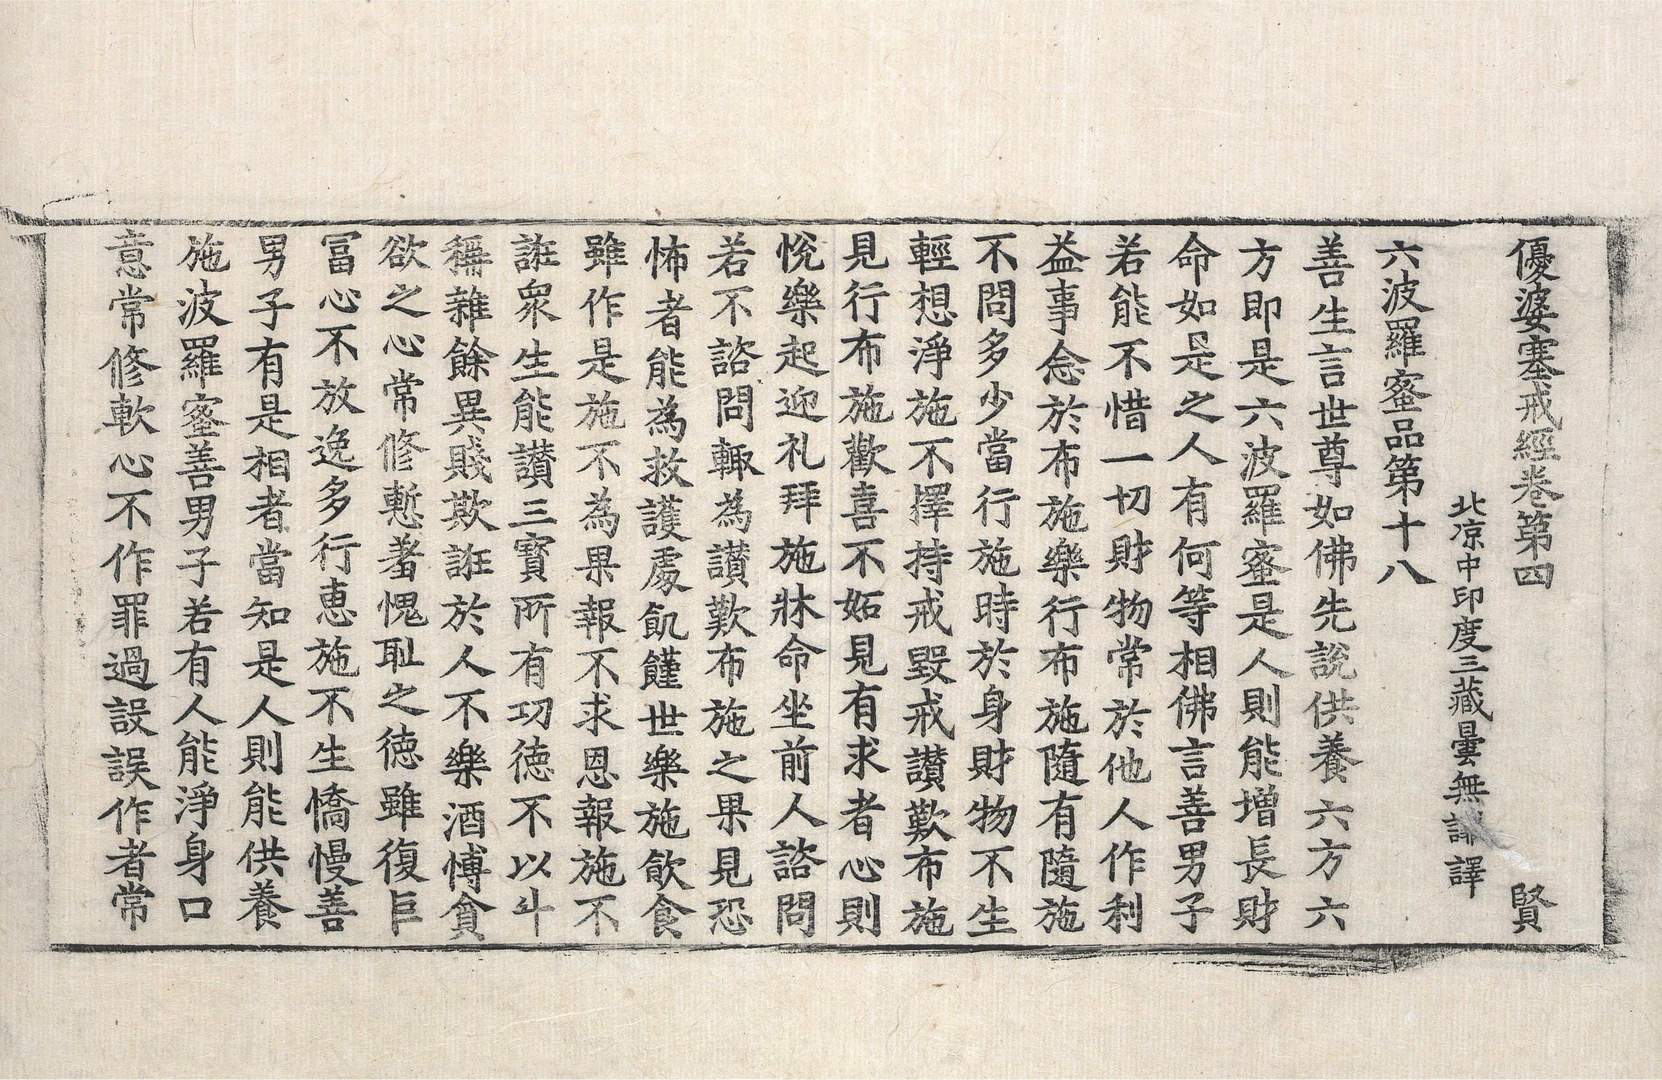 優婆塞戒經卷第四 賢
北涼中印度三藏曇無讖譯
六波羅蜜品第十八
善生言世尊如佛先說供養六方六
方即是六波羅蜜是人則能增長財
命如是之人有何等相佛言善男子
若能不惜一切財物常於他人作利
益事念於布施樂行布施隨有隨施
不問多少當行施時於身財物不生
輕想淨施不擇持戒毀戒讃歎布施
見行布施歡喜不妬見有求者心則
悅樂起迎礼拜施牀命坐前人諮問
若不諮問輙為讃歎布施之果見恐
怖者能為救護處飢饉世樂施飲食
雖作是施不為果報不求恩報施不
誑衆生能讃三寳所有功徳不以斗
稱雜餘異賤欺誑於人不樂酒愽貪
欲之心常修慙羞愧耻之徳雖復巨
冨心不放逸多行恵施不生憍慢善
男子有是相者當知是人則能供養
施波羅蜜善男子若有人能淨身口
意常修軟心不作罪過設誤作者常